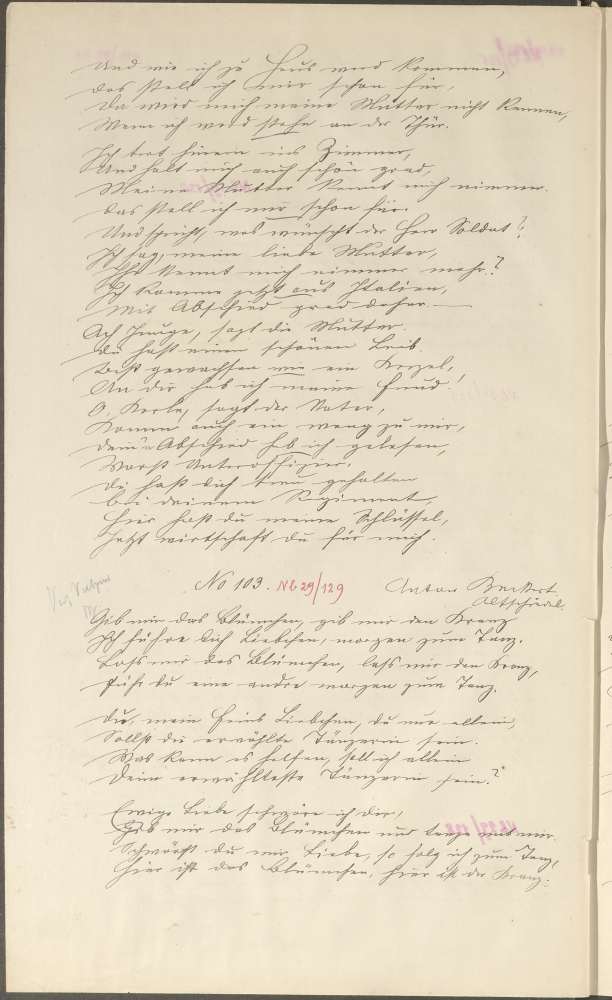 Und wie ich zu Haus werd kommen,
das stell ich mir schon für,
Da wird mich meine Mutter nicht kennen,
Wenn ich werd stehn an der Thür.
Ich tret hinein ins Zimmer,
Und halt mich auch schön grad,
Meine Mutter kennt mich nimmer.
das stell ich mir schon für.
Und spricht, was wünscht der Herr Soldat?
Ich sag, meine liebe Mutter,
Ihr kennt mich nimmer mehr?
Ich komme jetzt aus Italien,
Mit Abschied grad daher.
Ach Junge, sagt die Mutter.
du hast einen schönen Leib
bist gewachsen wie ein Kerzel,
An dir hab ich meine Freud!
O, Kerle, sagt der Vater,
Komm auch ein weng zu mir,
dein Abschied hab ich gelesen,
Warst Unteroffizier.
Du hast dich treu gehalten
bei deinem Regiment,
Hier hast du meine Schlüssel,
Jetzt wirtschaft du für mich.
No 103. Nb 29/129 Anton
Altschädel.
Gib mir das Blümchen, gib mir den Kranz
Ich führe dich Liebchen, morgen zum Tanz.
Lass mir das Blümchen, lass mir den Kranz,
führ du eine andre morgen zum Tanz.
Du, mein feins Liebchen, du nur allein,
Sollst die erwählte Tänzerin sein.
Was kann es helfen, soll ich allein
Deine erwählteste Tänzerin sein?
Ewige Liebe schwöre ich dir,
Gib mir das Blümchen und tanze mit mir.
Schwörst du mir Liebe, so folg ich zum Tanz,
Hier ist das Blümchen, hier ist der Kranz.